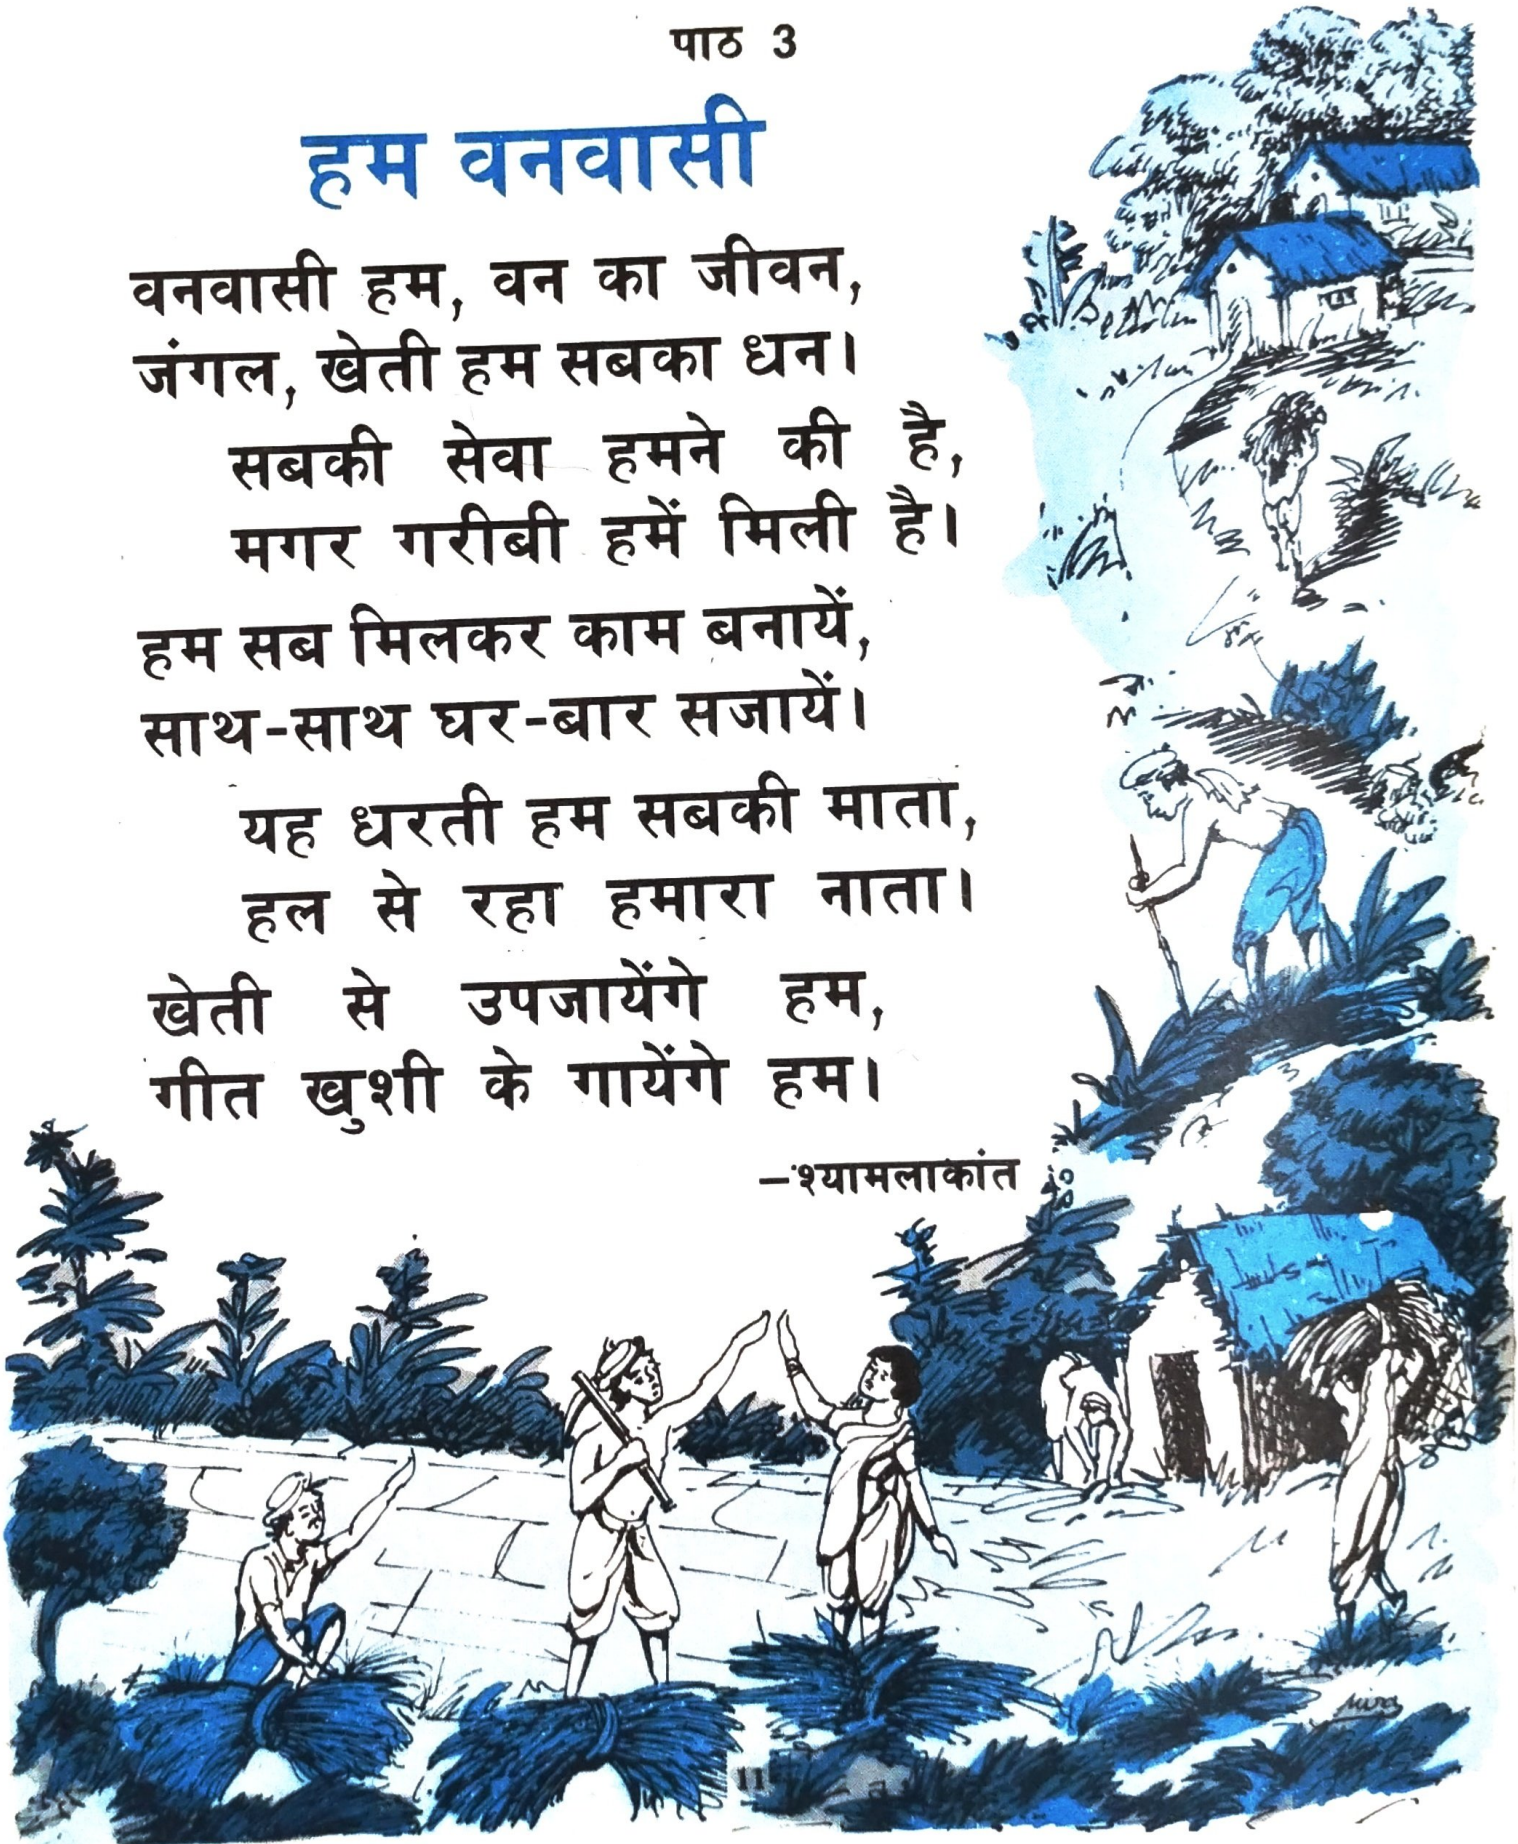 पाठ 3
हम वनवासी
वनवासी हम, वन का जीवन,
जंगल, खेती हम सबका धन।
सबकी सेवा हमने की है,
मगर गरीबी हमें मिली है।
हम सब मिलकर काम बनायें,
साथ-साथ घर-बार सजायें।
यह धरती हम सबकी माता,
हल से रहा हमारा नाता।
खेती से उपजायेंगे हम,
गीत खुशी के गायेंगे हम।
–श्यामलाकांत
11